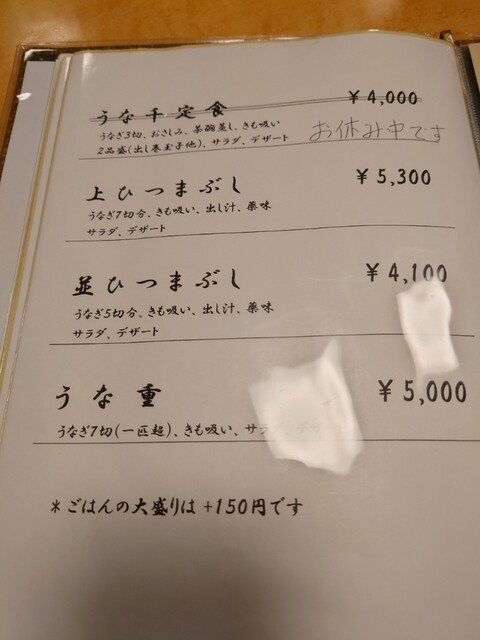 うな千定食 ¥4,000
うなぎ3切、おさしみ、茶碗蒸し、きも吸い
2品盛(出し巻玉子他)、サラダ、デザート
お休み中です
上ひつまぶし ¥5,300
うなぎ7切分、きも吸い、出し汁、薬味
サラダ、デザート
並ひつまぶし ¥4,100
うなぎ5切分、きも吸い、出し汁、薬味
サラダ、デザート
うな重 ¥5,000
うなぎ7切(一匹超)、きも吸い、サラダ、デザート
*ごはんの大盛りは+150円です